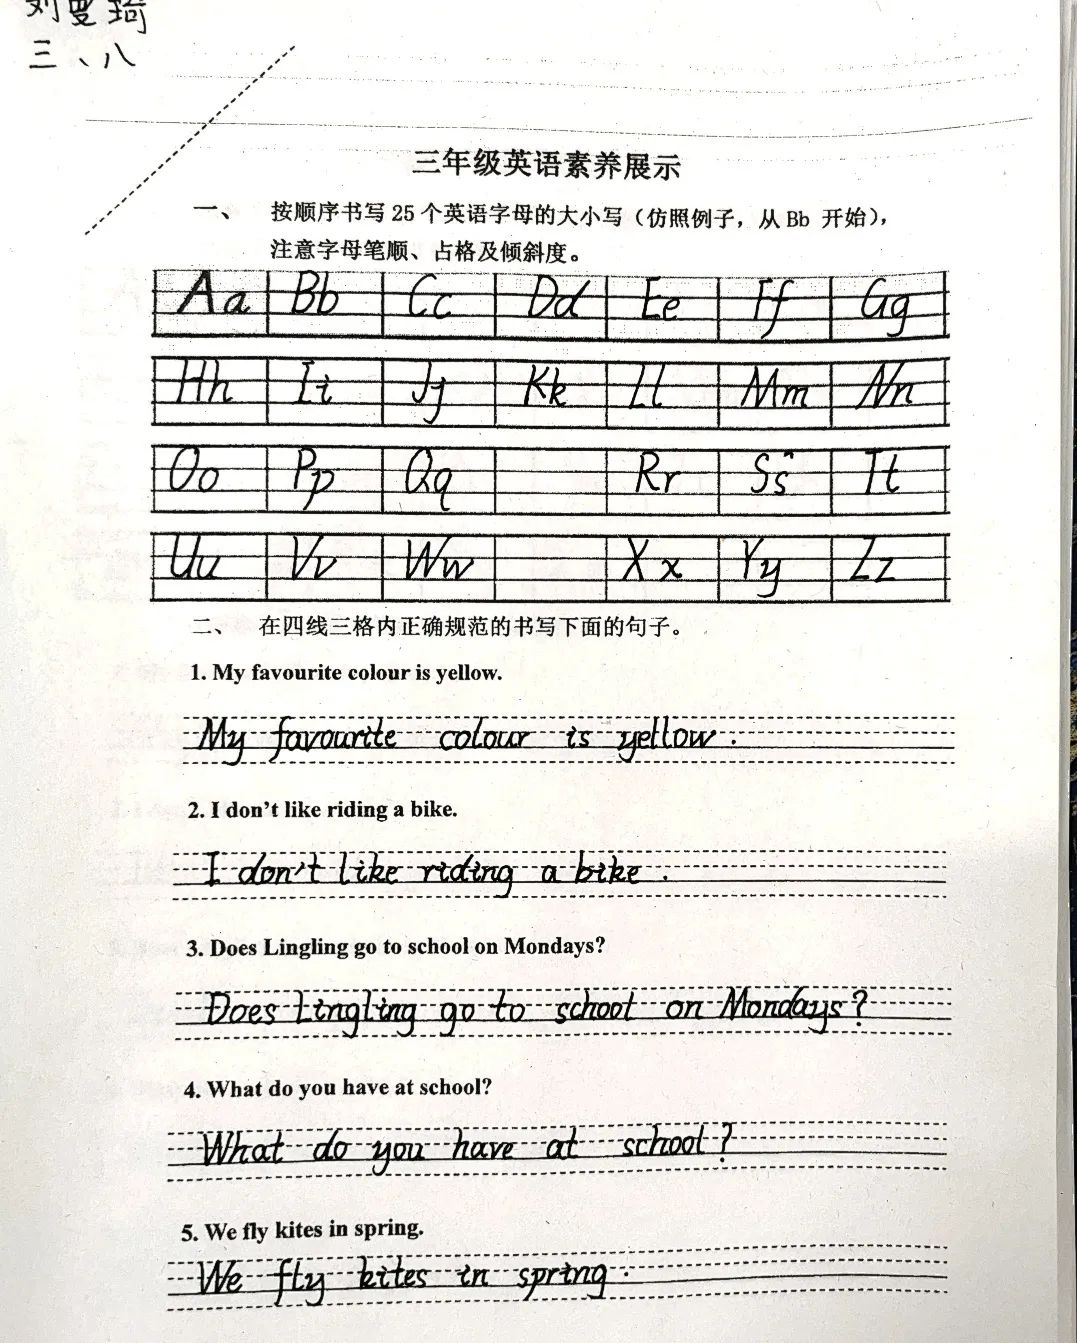 刘曼琦
三、八
三年级英语素养展示
一、 按顺序书写 25 个英语字母的大小写（仿照例子，从 Bb 开始），
注意字母笔顺、占格及倾斜度。
Aa Bb Cc Dd Ee Ff Gg
Hh Ii Jj Kk Ll Mm Nn
Oo Pp Qq Rr Ss Tt
Uu Vv Ww Xx Yy Zz
二、 在四线三格内正确规范的书写下面的句子。
1. My favourite colour is yellow.
My favourite colour is yellow.
2. I don't like riding a bike.
I don't like riding a bike.
3. Does Lingling go to school on Mondays?
Does Lingling go to school on Mondays?
4. What do you have at school?
What do you have at school?
5. We fly kites in spring.
We fly kites in spring.